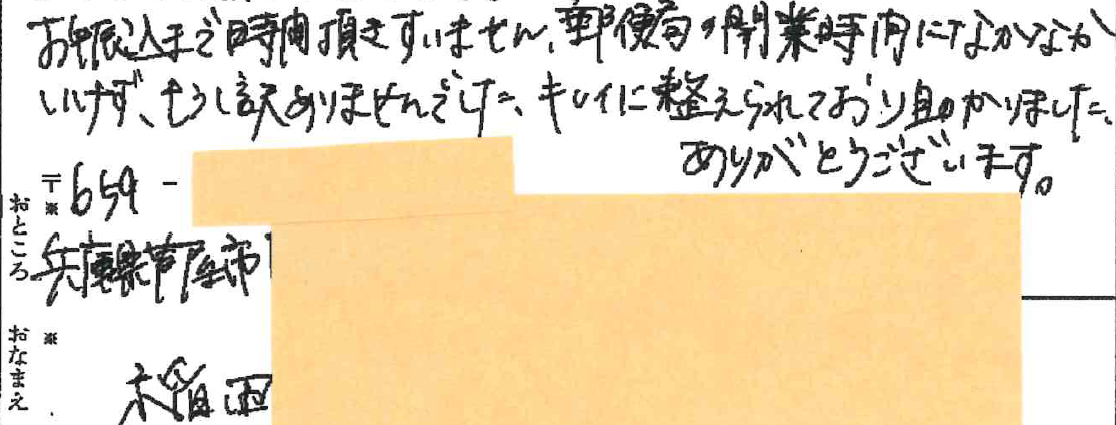 お振込まで時間頂きすいません、郵便局の開業時間になかなか
いけず、もうし訳ありませんでした、キレイに整えられており助かりました、
ありがとうございます。
〒※ 659 -
おところ 兵庫県芦屋市
おなまえ ※ 稲西